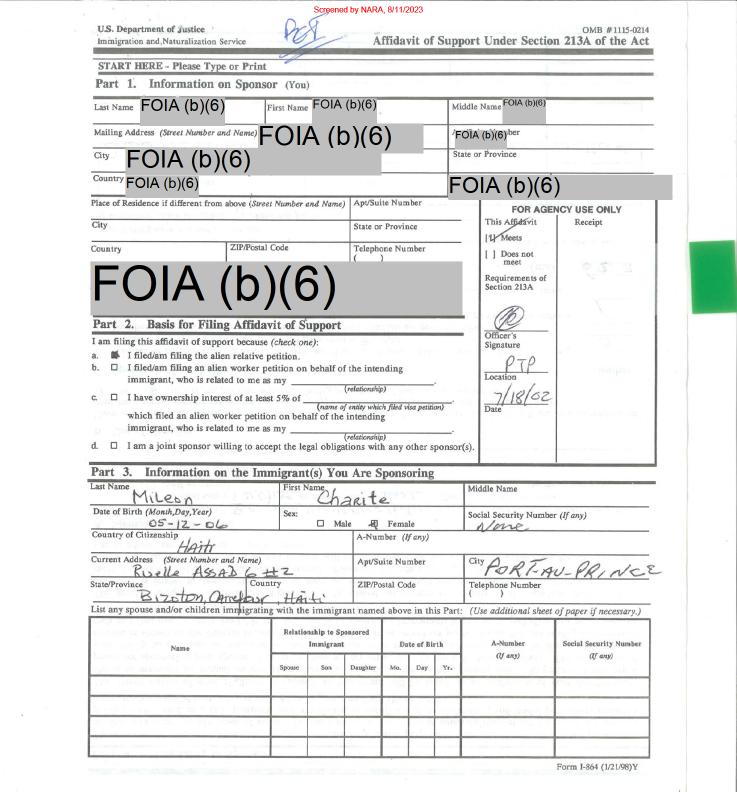 Screened by NARA, 8/11/2023
U.S. Department of Justice
Immigration and Naturalization Service
OMB #1115-0214
Affidavit of Support Under Section 213A of the Act
START HERE - Please Type or Print
Part 1. Information on Sponsor (You)
Last Name FOIA (b)(6) First Name FOIA (b)(6) Middle Name FOIA (b)(6)
Mailing Address (Street Number and Name) FOIA (b)(6) FOIA (b)(6)
City FOIA (b)(6) State or Province
Country FOIA (b)(6) FOIA (b)(6)
Place of Residence if different from above (Street Number and Name) Apt/Suite Number
City State or Province
Country ZIP/Postal Code Telephone Number
( )
FOIA (b)(6)
FOR AGENCY USE ONLY
This Affidavit Receipt
[ ] Meets
[ ] Does not
meet
Requirements of
Section 213A
Officer's
Signature
PTP
Location
7/18/02
Date
Part 2. Basis for Filing Affidavit of Support
I am filing this affidavit of support because (check one):
a. I filed/am filing the alien relative petition.
b. ☐ I filed/am filing an alien worker petition on behalf of the intending
immigrant, who is related to me as my
(relationship)
c. ☐ I have ownership interest of at least 5% of
(name of entity which filed visa petition)
which filed an alien worker petition on behalf of the intending
immigrant, who is related to me as my
(relationship)
d. ☐ I am a joint sponsor willing to accept the legal obligations with any other sponsor(s).
Part 3. Information on the Immigrant(s) You Are Sponsoring
Last Name First Name Middle Name
Mileon Charite
Date of Birth (Month,Day,Year) Sex: Social Security Number (If any)
05-12-06 ☐ Male ☒ Female None
Country of Citizenship A-Number (If any)
Haiti
Current Address (Street Number and Name) Apt/Suite Number City PORT-AU-PRINCE
Ruelle ASSAD 6 #2
State/Province Country ZIP/Postal Code Telephone Number
Bizoton, Carrefour, Haiti ( )
List any spouse and/or children immigrating with the immigrant named above in this Part: (Use additional sheet of paper if necessary.)
Name Relationship to Sponsored Immigrant Date of Birth A-Number (If any) Social Security Number (If any)
Spouse Son Daughter Mo. Day Yr.
Form I-864 (1/21/98)Y